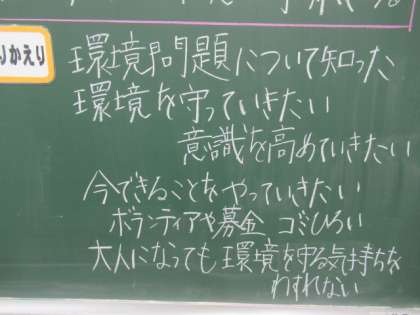 りかえり
環境問題について知った
環境を守っていきたい
意識を高めていきたい
今できることをやっていきたい
ボランティアや募金 ゴミひろい
大人になっても環境を守る気持ちを
わすれない